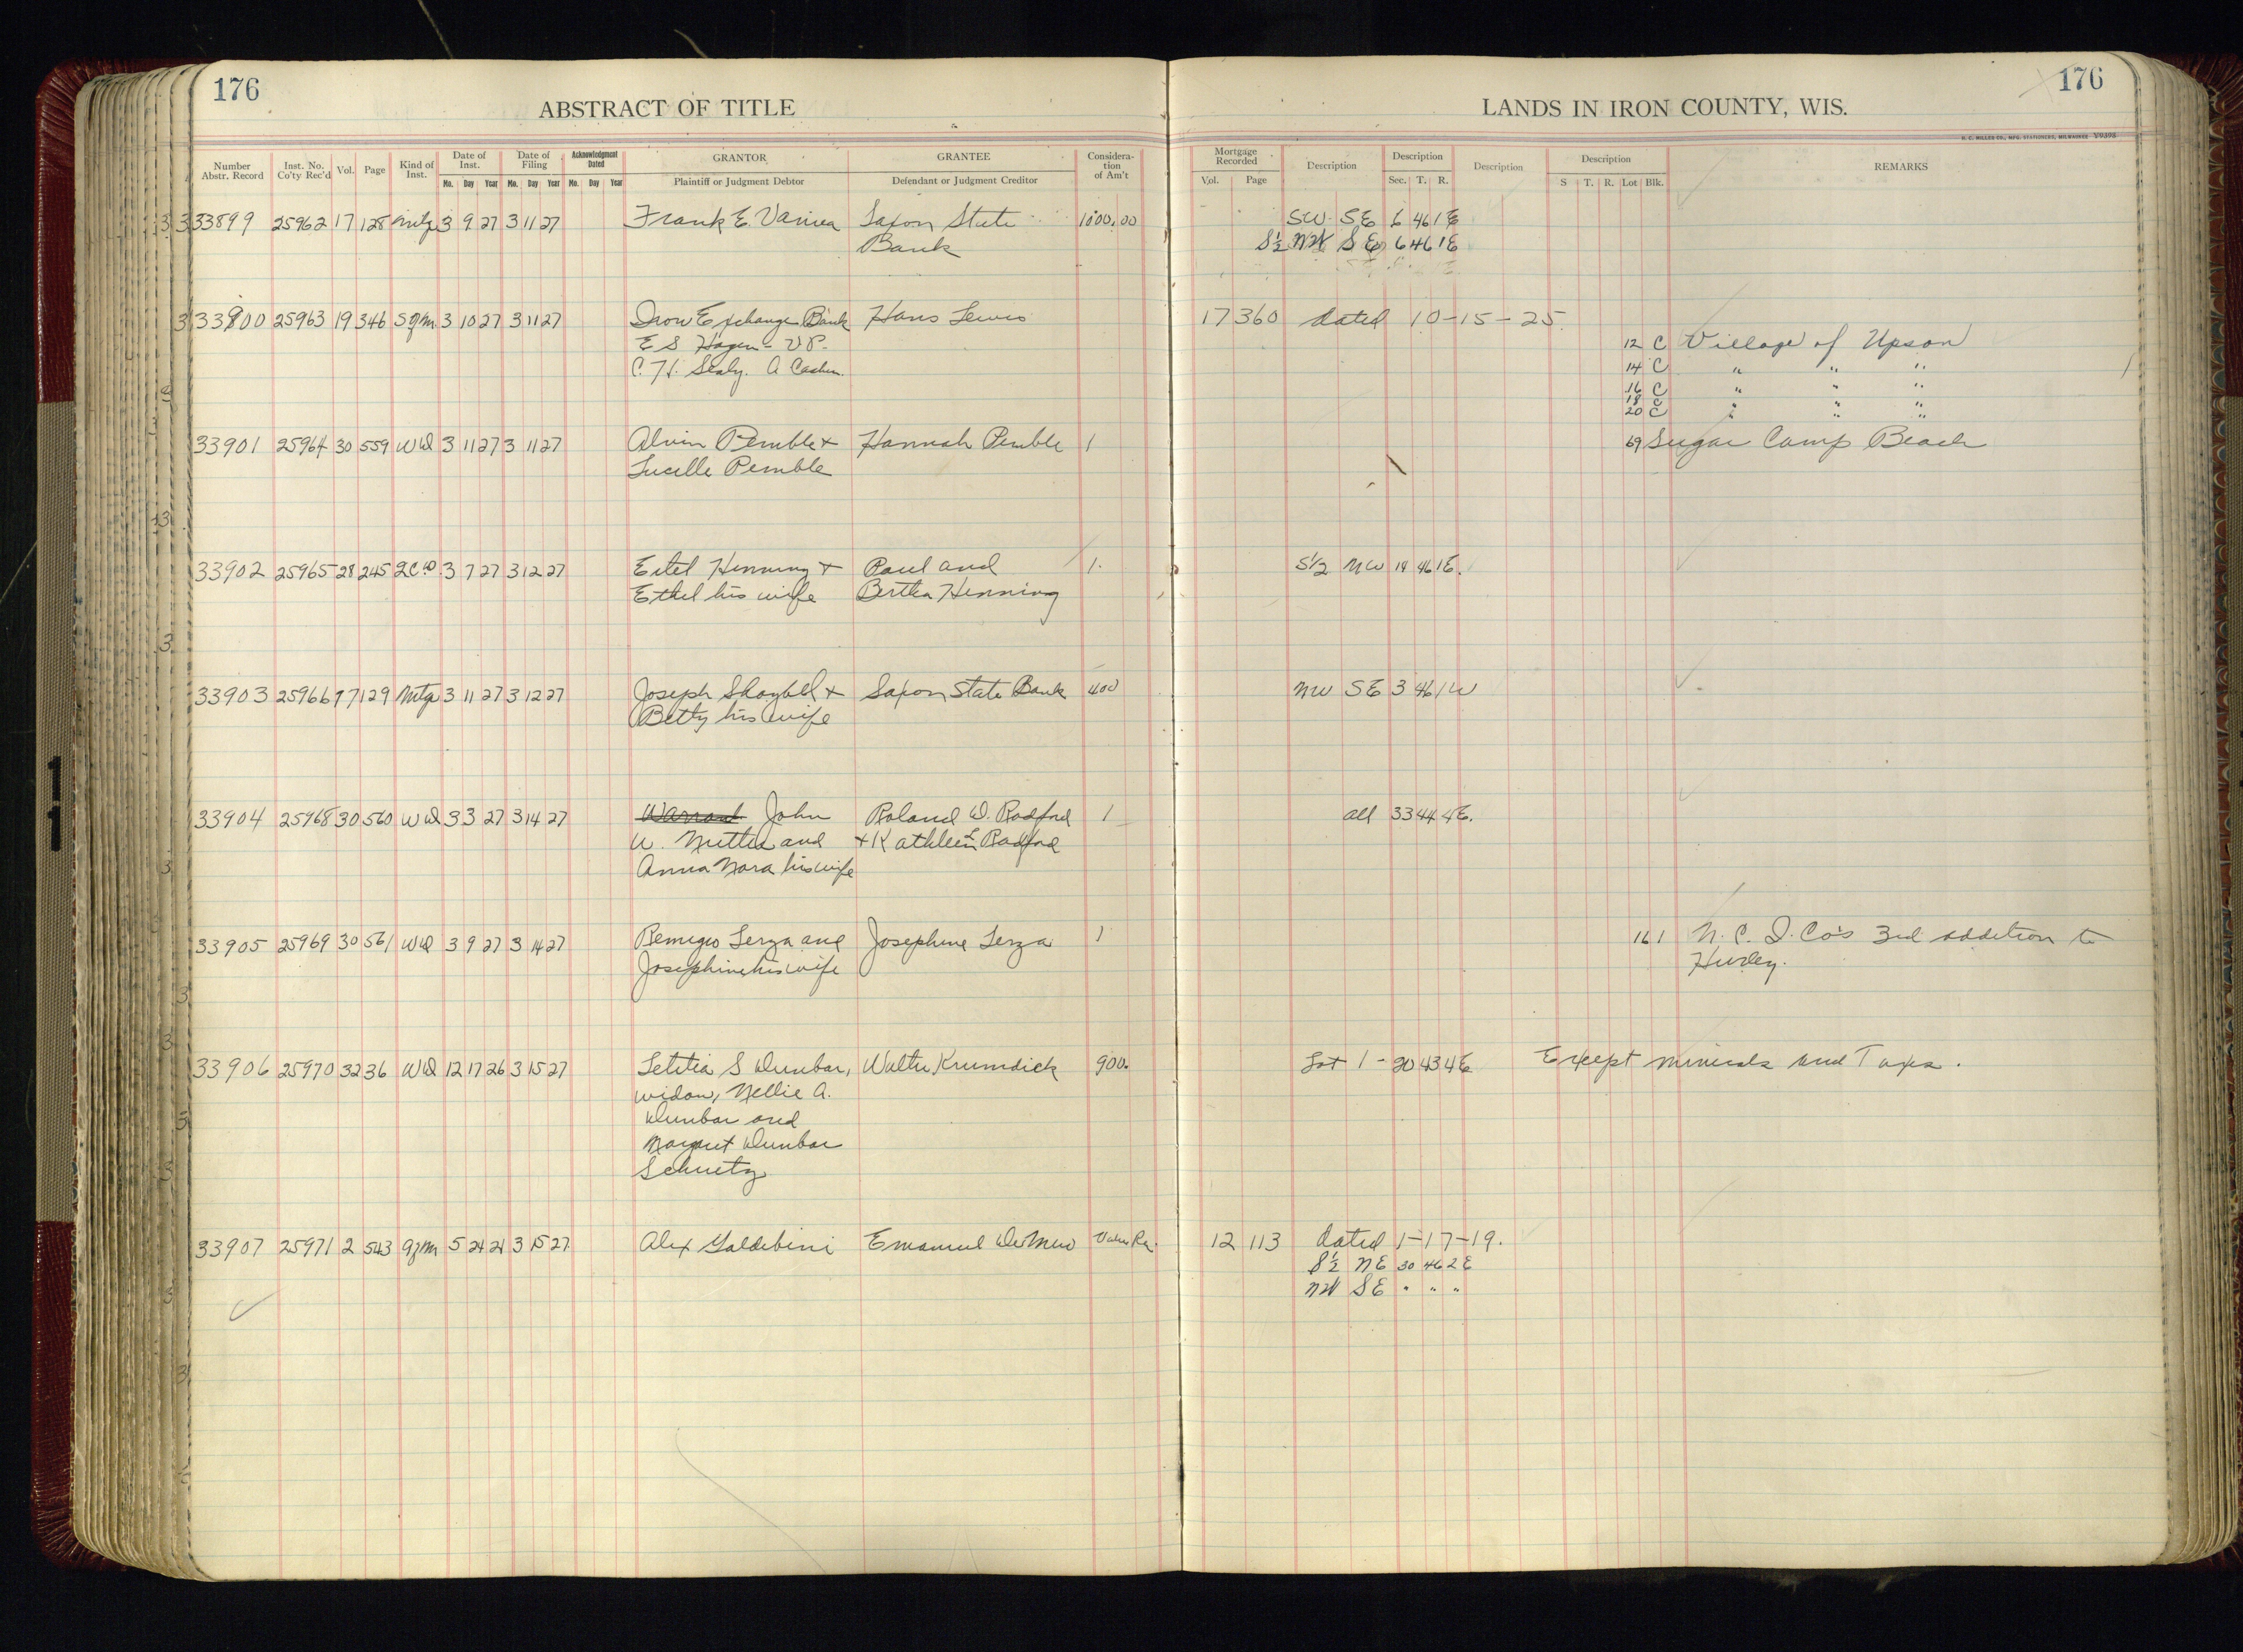 176
ABSTRACT OF TITLE
LANDS IN IRON COUNTY, WIS.
176
H. C. MILLER CO., MFG. STATIONERS, MILWAUKEE
Number Abstr. Record | Inst. No. Co'ty Rec'd | Vol. | Page | Kind of Inst. | Date of Inst. Mo. Day Year | Date of Filing Mo. Day Year | Acknowledgment Dated Mo. Day Year | GRANTOR Plaintiff or Judgment Debtor | GRANTEE Defendant or Judgment Creditor | Consideration of Am't | Mortgage Recorded Vol. Page | Description | Description Sec. T. R. | Description | Description S T. R. Lot Blk. | REMARKS
33899 25962 17 128 Mtg 3 9 27 3 11 27 Frank E. Saxon State 1000.00 SW SE 6 46 1E
Bank S½ NW SE 6 46 1E
33900 25963 19 346 3 10 27 3 11 27 Iron Exchange Bank Hans Lewis 17 360 dated 10-15-25
E S Hagen - VP. 12 C Village of Upson
C. H. A Cashier. 14 C " " "
16 C " " "
18 C
20 C " " "
33901 25964 30 559 WD 3 11 27 3 11 27 Alvin Pemble + Hannah Pemble 1 69 Sugar Camp Beach
Lucille Pemble
33902 25965 28 245 QCD 3 7 27 3 12 27 Eitel Henning + Paul and 1. S½ NW 14 46 1E.
Ethel his wife Bertha Henning
33903 25966 17 129 Mtg 3 11 27 3 12 27 Joseph + Saxon State Bank 400 NW SE 3 46 1W
Betty his wife
33904 25968 30 560 WD 3 3 27 3 14 27 John Roland D. Radford 1 all 33 44 4E.
W. and + Kathleen L Radford
Anna Nora his wife
33905 25969 30 561 WD 3 9 27 3 14 27 Remigio Lerza and Josephine Lerza 1 16 1 N. C. I. Co's 3rd addition to
Josephine his wife Hurley.
33906 25970 32 36 WD 12 17 26 3 15 27 Letitia S Dunbar, Walter Krumdick 900. Lot 1 - 20 43 4E Except minerals and Taxes.
widow, Nellie A.
Dunbar and
Margaret Dunbar
Schuetz
33907 25971 2 543 5 24 24 3 15 27 Alex Galdibini Emanuel Value Re. 12 113 dated 1-17-19.
S½ NE 30 46 2E
NW SE " " "